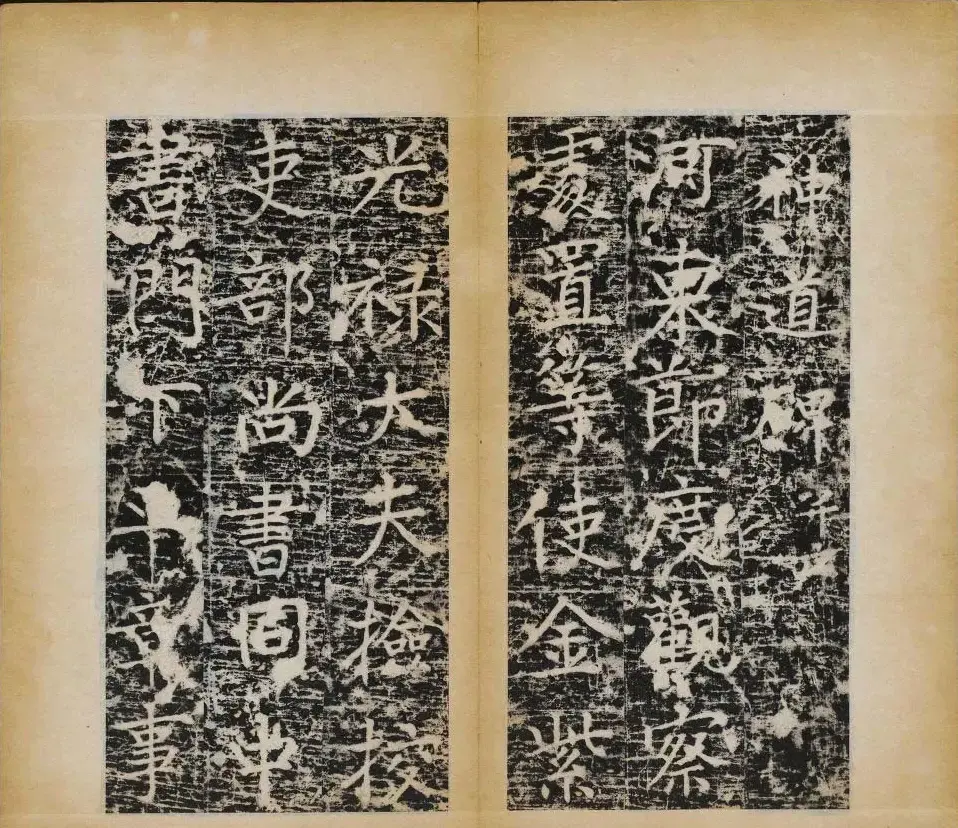 神道碑
河東節度觀察
處置等使金紫
光禄大夫撿挍
吏部尚書同中
書門下平章事